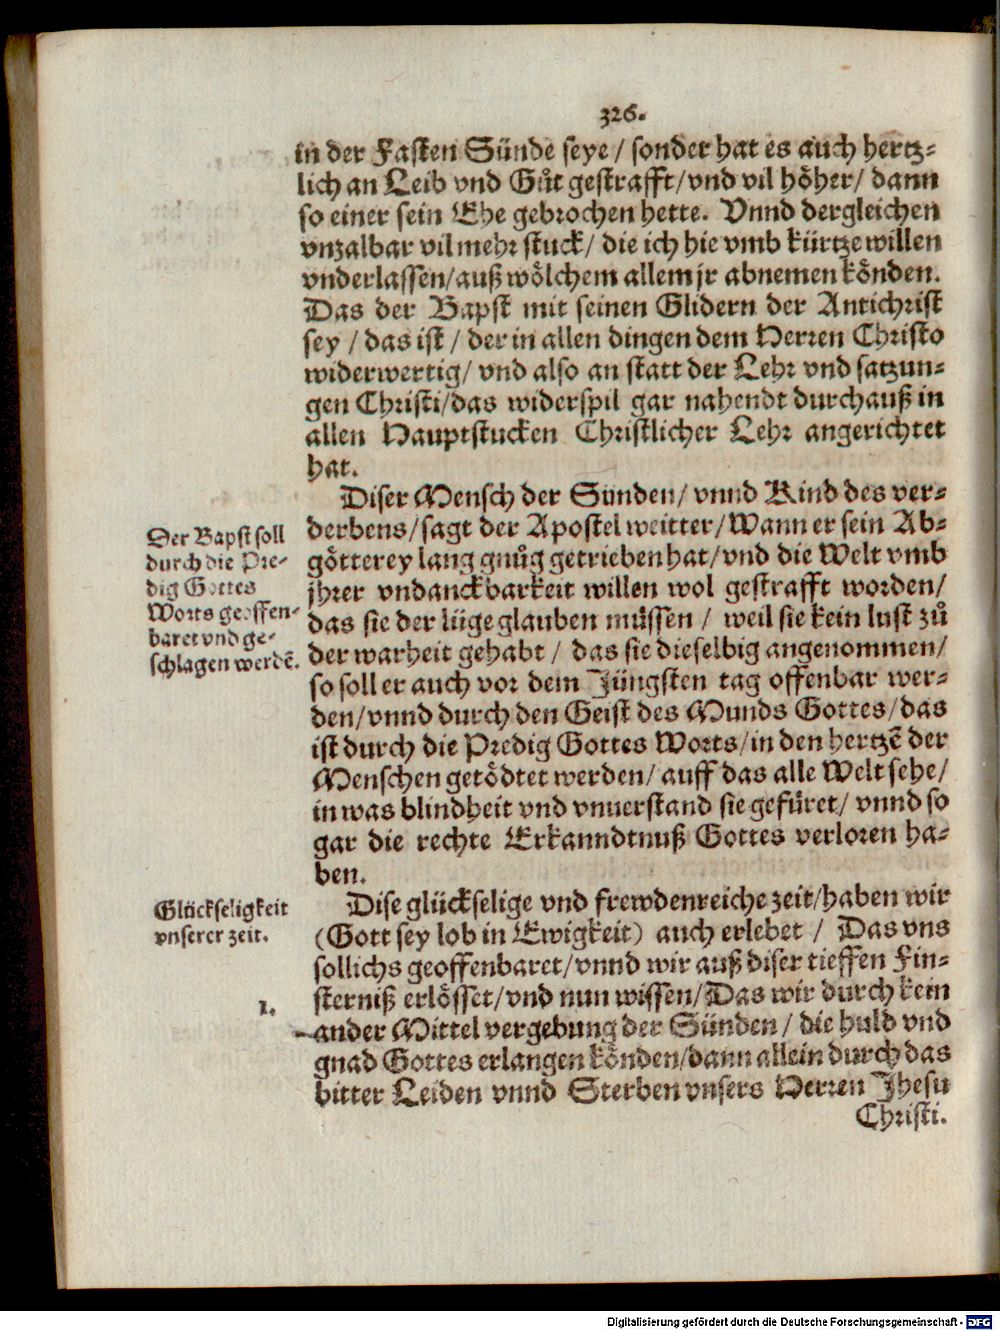 326.
in der Fasten Sünde seye / sonder hat es auch hertz-
lich an Leib vnd Gůt gestrafft/vnd vil höher/ dann
so einer sein Ehe gebrochen hette. Vnnd dergleichen
vnzalbar vil mehr stuck/ die ich hie vmb kürtze willen
vnderlassen/auß wölchem allem jr abnemen könden.
Das der Bapst mit seinen Glidern der Antichrist
sey / das ist / der in allen dingen dem Herren Christo
widerwertig/ vnd also an statt der Lehr vnd satzun-
gen Christi/das widerspil gar nahendt durchauß in
allen Hauptstucken Christlicher Lehr angerichtet
hat.
Diser Mensch der Sünden/ vnnd Kind des ver-
Der Bapst soll
durch die Pre-
dig Gottes
Worts geoffen-
baret vnd ge-
schlagen werdē.
derbens/sagt der Apostel weitter/Wann er sein Ab-
götterey lang gnůg getrieben hat/vnd die Welt vmb
jhrer vndanckbarkeit willen wol gestrafft worden/
das sie der lüge glauben müssen / weil sie kein lust zů
der warheit gehabt / das sie dieselbig angenommen/
so soll er auch vor dem Jüngsten tag offenbar wer-
den/vnnd durch den Geist des Munds Gottes/das
ist durch die Predig Gottes Worts/in den hertzē der
Menschen getödtet werden/ auff das alle Welt sehe/
in was blindheit vnd vnuerstand sie gefüret/ vnnd so
gar die rechte Erkanndtnuß Gottes verloren ha-
ben.
Glückseligkeit
vnserer zeit.
Dise glückselige vnd frewdenreiche zeit/haben wir
(Gott sey lob in Ewigkeit) auch erlebet / Das vns
sollichs geoffenbaret/vnnd wir auß diser tieffen Fin-
sterniß erlösset/vnd nun wissen/Das wir durch kein
1.
ander Mittel vergebung der Sünden/ die huld vnd
gnad Gottes erlangen könden/dann allein durch das
bitter Leiden vnnd Sterben vnsers Herren Jhesu
Christi.
Digitalisierung gefördert durch die Deutsche Forschungsgemeinschaft - DFG